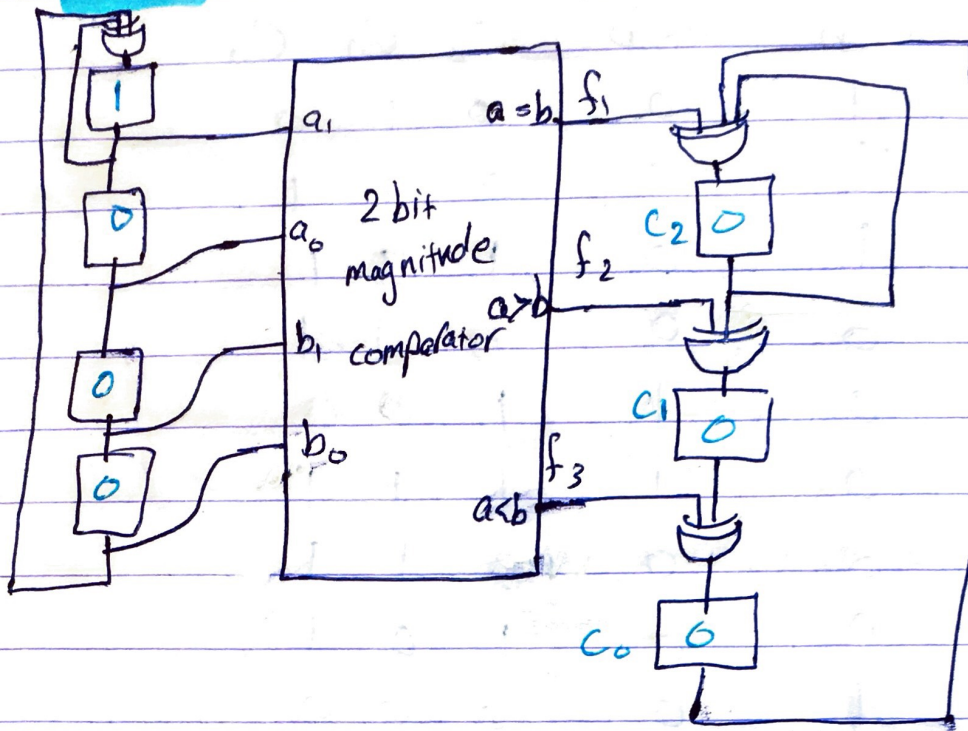 1
0
0
0
a₁
a₀
b₁
b₀
2 bit
magnitude
comparator
a = b
a > b
a < b
f₁
f₂
f₃
C₂
0
C₁
0
C₀
0